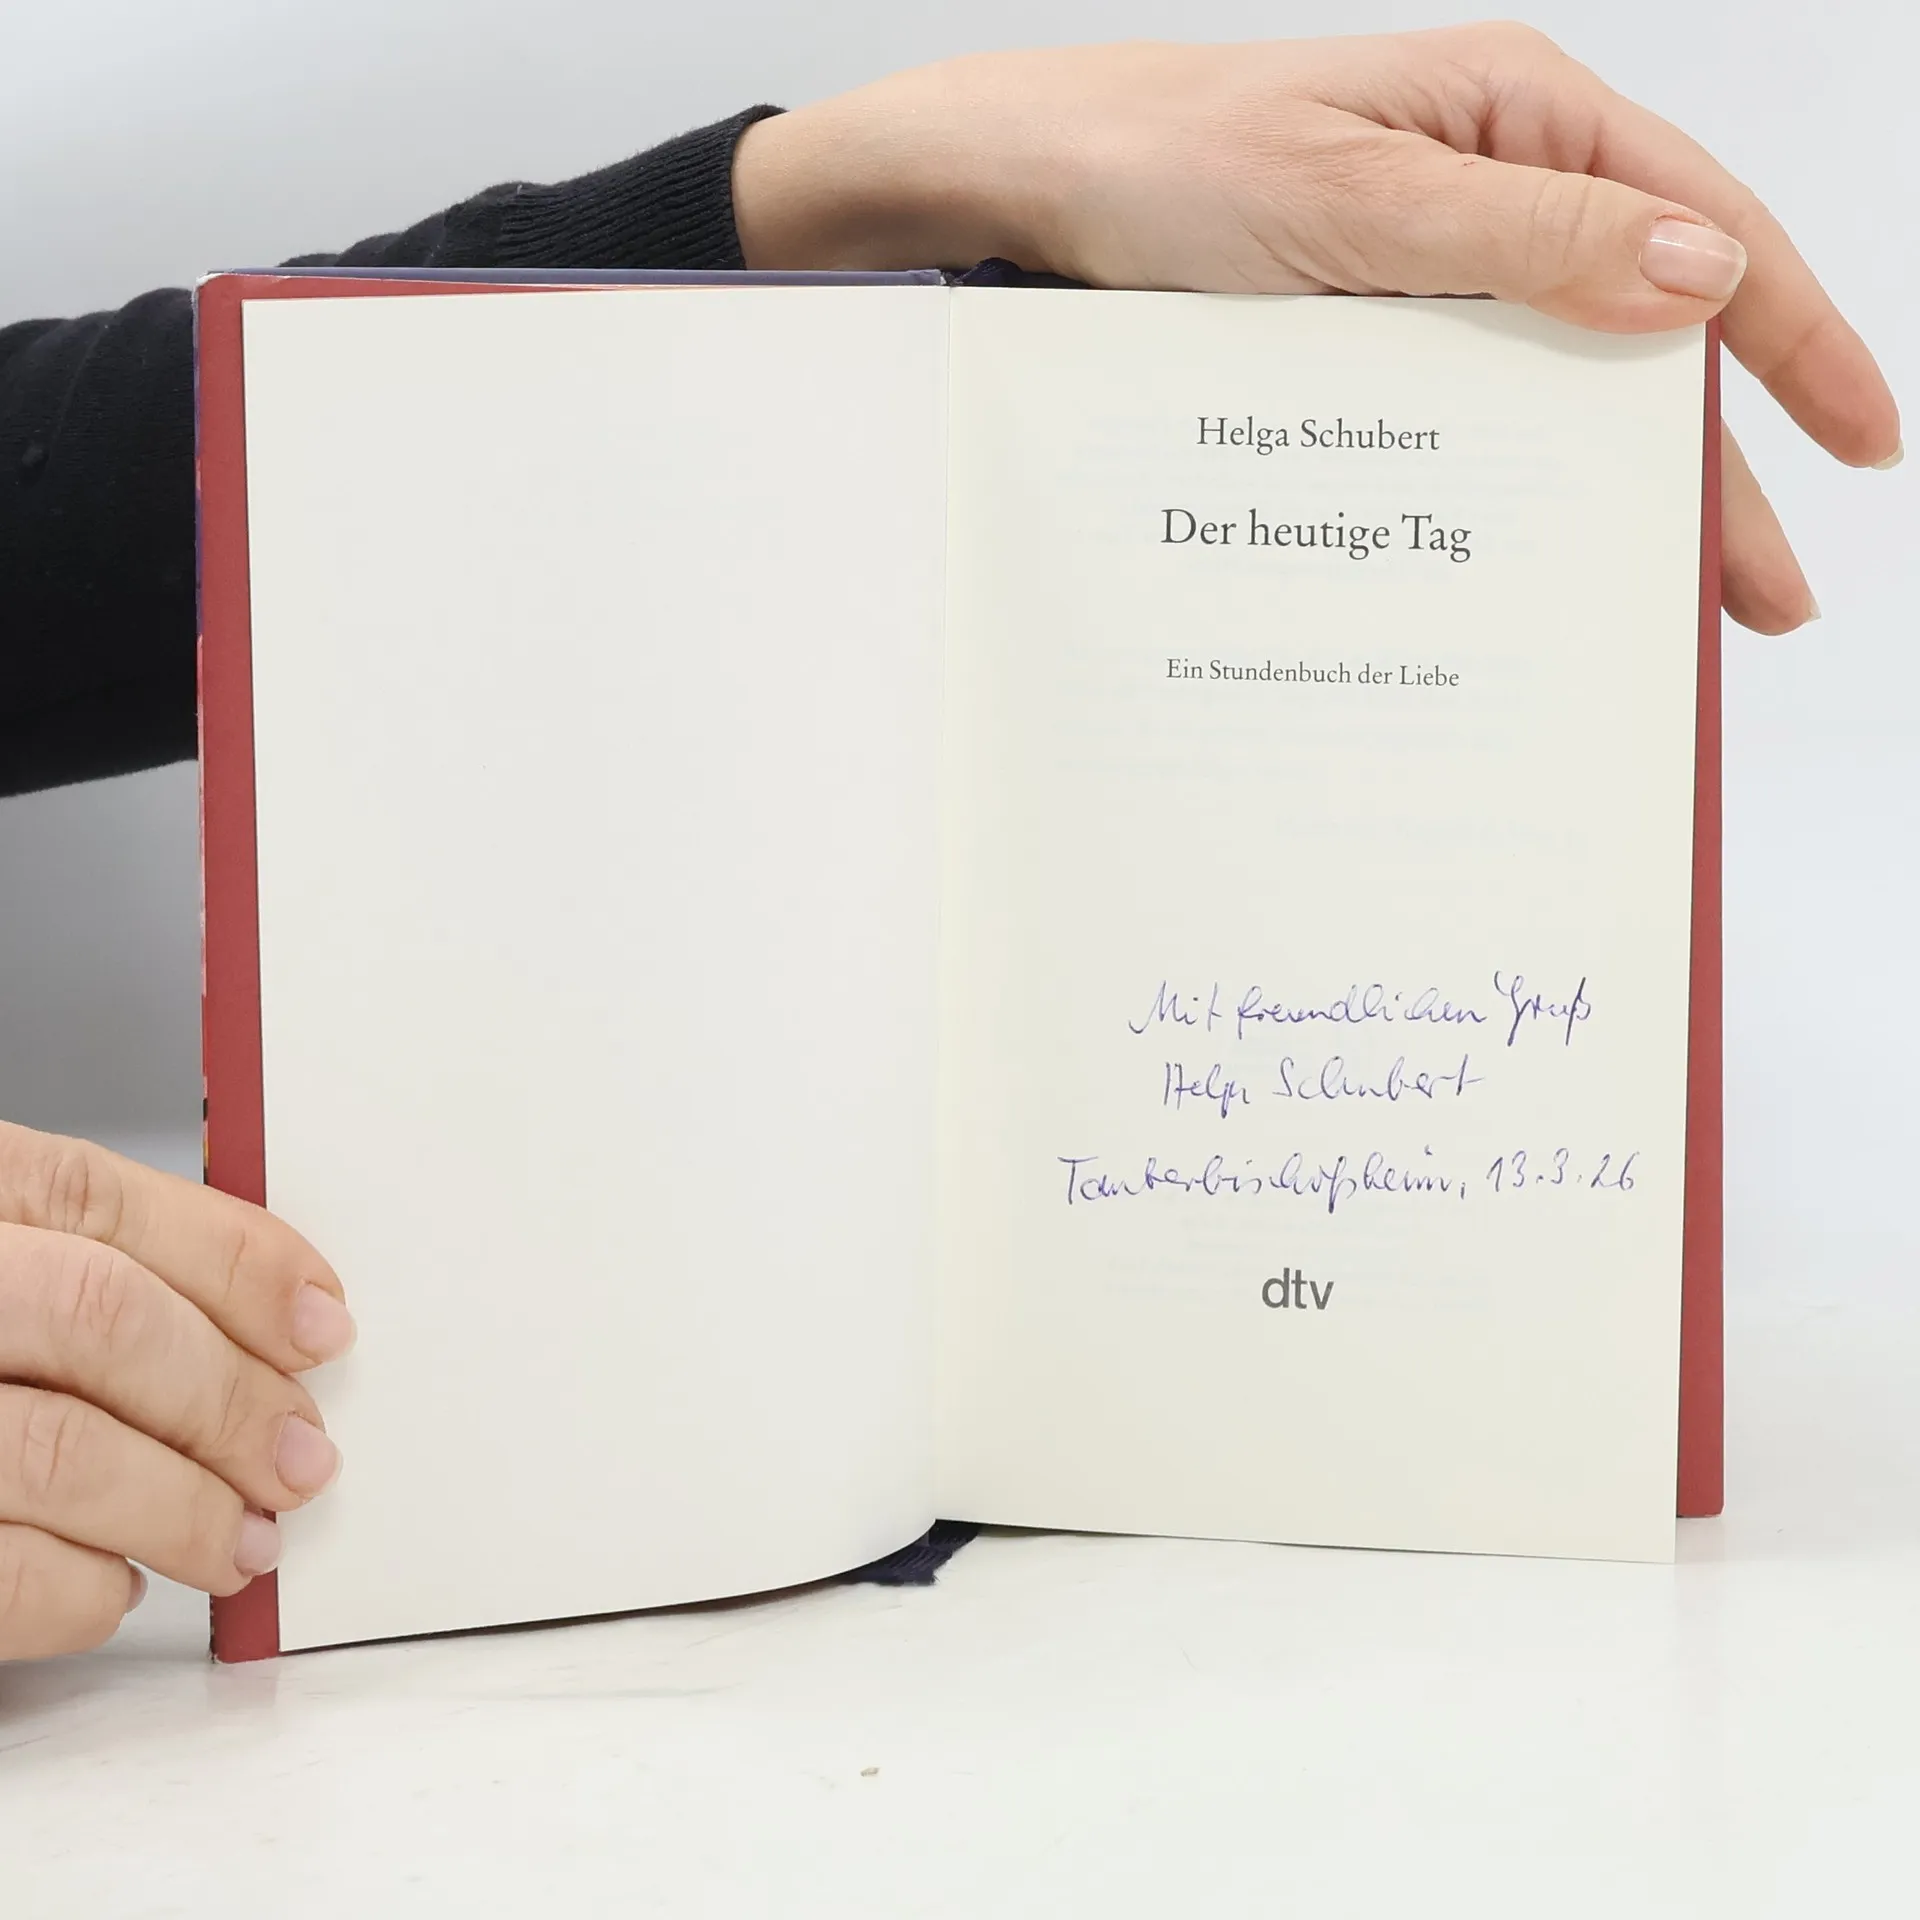 Helga Schubert
Der heutige Tag
Ein Stundenbuch der Liebe
Mit freundlichen Gruß
Helga Schubert
Tauberbischofsheim, 13.3.26
dtv